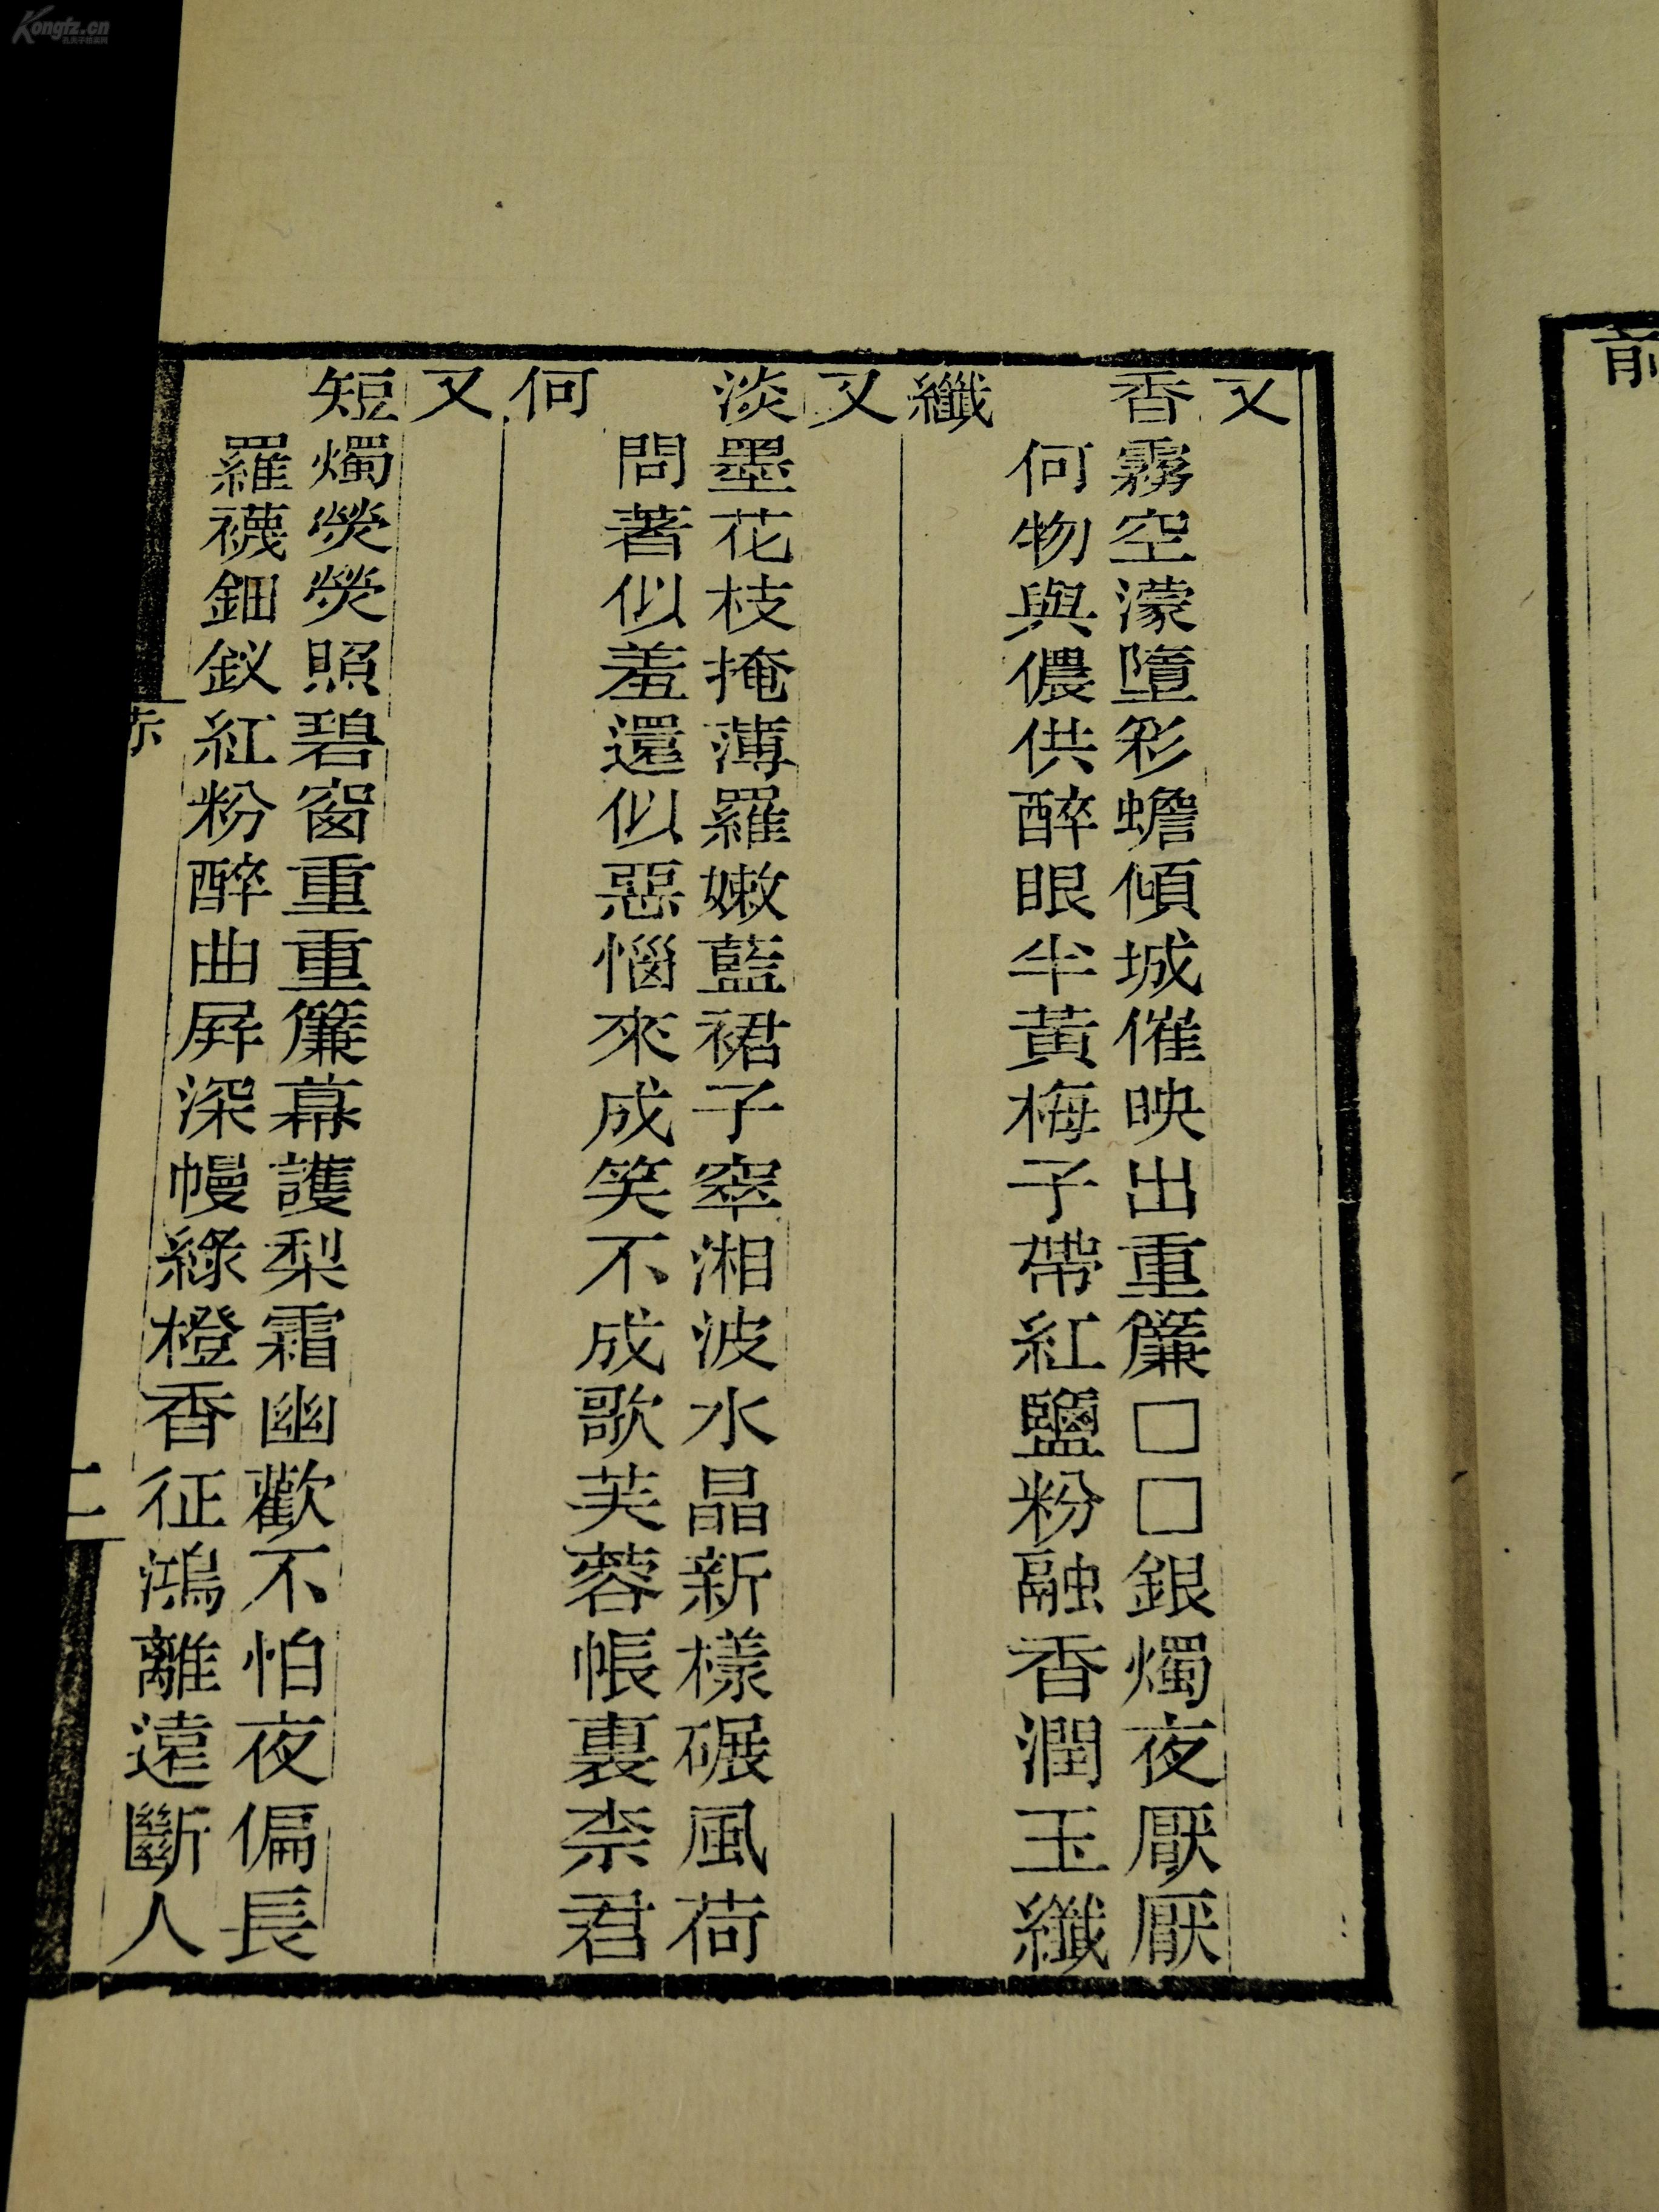 Kongfz.cn
前
又
香霧空濛墮彩蟾傾城催映出重簾□□銀燭夜厭厭
何物與儂供醉眼半黃梅子帶紅鹽粉融香潤玉纖
纖
又
淡墨花枝掩薄羅嫩藍裙子窣湘波水晶新樣碾風荷
問著似羞還似惡惱來成笑不成歌芙蓉帳裏柰君
何
又
短燭熒熒照碧窗重重簾幕護梨霜幽歡不怕夜偏長
羅襪鈿釵紅粉醉曲屛深幔綠橙香征鴻離遠斷人